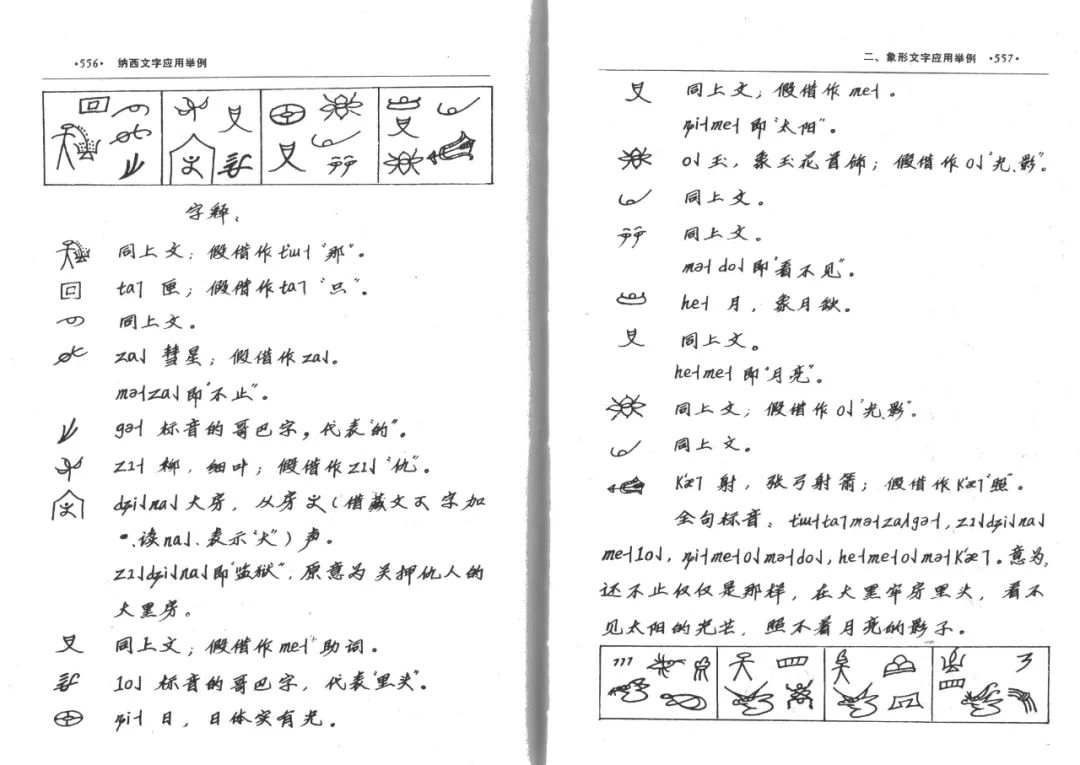 ·556· 纳西文字应用举例
字释:
同上文;假借作t'ɯ˧“那”。
ta˥ 匣;假借作ta˥“只”。
同上文。
za˩ 彗星;假借作za˩。
mə˧za˩即“不止”。
gə˧ 标音的哥巴字,代表“的”。
zɿ˧ 柳,细叶;假借作zɿ˩“仇”。
dʑi˩na˩大房,从房
读na˩、表示“大”)声。
zɿ˩dʑi˩na˩即“监狱”,原意为关押仇人的
大黑房。
同上文;假借作me˧助词。
lo˩ 标音的哥巴字,代表“里头”。
ȵi˧ 日,日体实有光。
二、象形文字应用举例 ·557·
同上文;假借作me˧。
ȵi˧me˧即“太阳”。
o˩玉,象玉花首饰;假借作o˩“光、影”。
同上文。
同上文。
mə˧do˩即“看不见”。
he˧ 月,象月缺。
同上文。
he˧me˧即“月亮”。
同上文;假借作o˩“光、影”。
同上文。
k'æ˥ 射,张弓射箭;假借作k'æ˥“照”。
全句标音:t'ɯ˧ta˥mə˧za˩gə˧,zɿ˩dʑi˩na˩
me˧lo˩,ȵi˧me˧o˩mə˧do˩,he˧me˧o˩mə˧k'æ˥。意为:
还不止仅仅是那样,在大黑牢房里头,看不
见太阳的光芒,照不着月亮的影子。